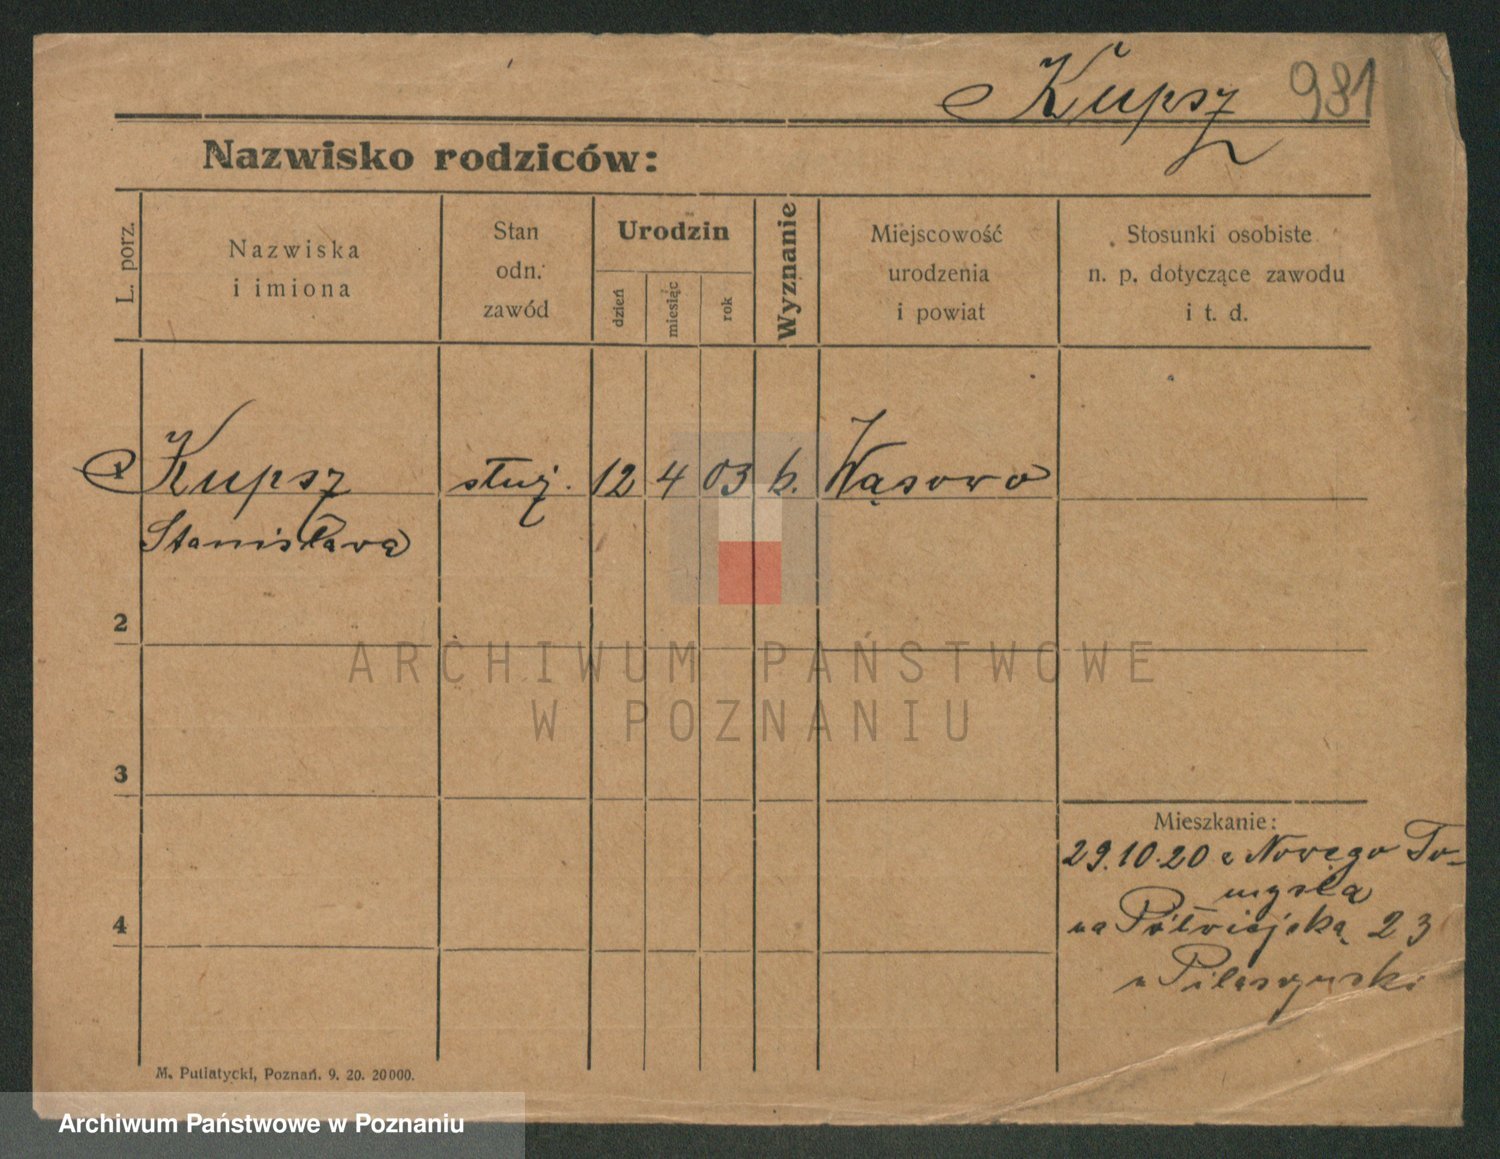 Kupsz 981
Nazwisko rodziców:
L. porz.
Nazwiska
i imiona
Stan
odn.
zawód
Urodzin
dzień
miesiąc
rok
Wyznanie
Miejscowość
urodzenia
i powiat
Stosunki osobiste
n. p. dotyczące zawodu
i t. d.
1 Kupsz służ. 12 4 03 k. Wąsowo
Stanisława
2
3
4
Mieszkanie:
29.10.20 z Nowego To-
mysla
na Półwiejską 23
u
M. Putiatycki, Poznań. 9. 20. 20000.
ARCHIWUM PAŃSTWOWE
W POZNANIU
Archiwum Państwowe w Poznaniu